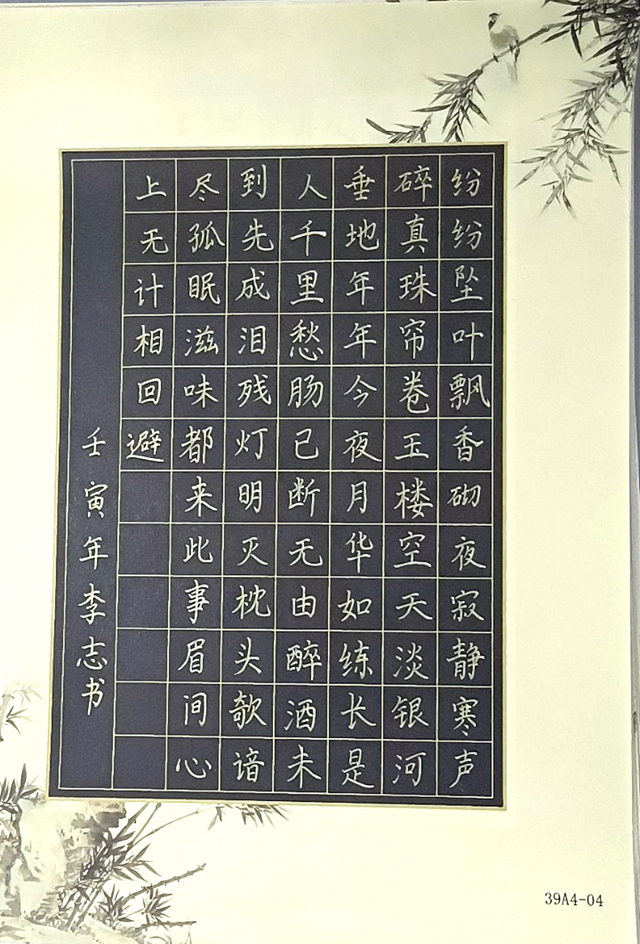 纷纷坠叶飘香砌夜寂静寒声
碎真珠帘卷玉楼空天淡银河
垂地年年今夜月华如练长是
人千里愁肠已断无由醉酒未
到先成泪残灯明灭枕头欹谙
尽孤眠滋味都来此事眉间心
上无计相回避
壬寅年李志书
39A4-04